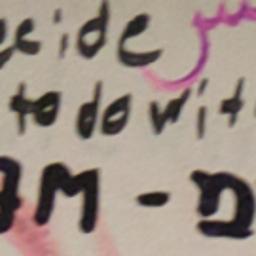 eide
to do wit
M - D